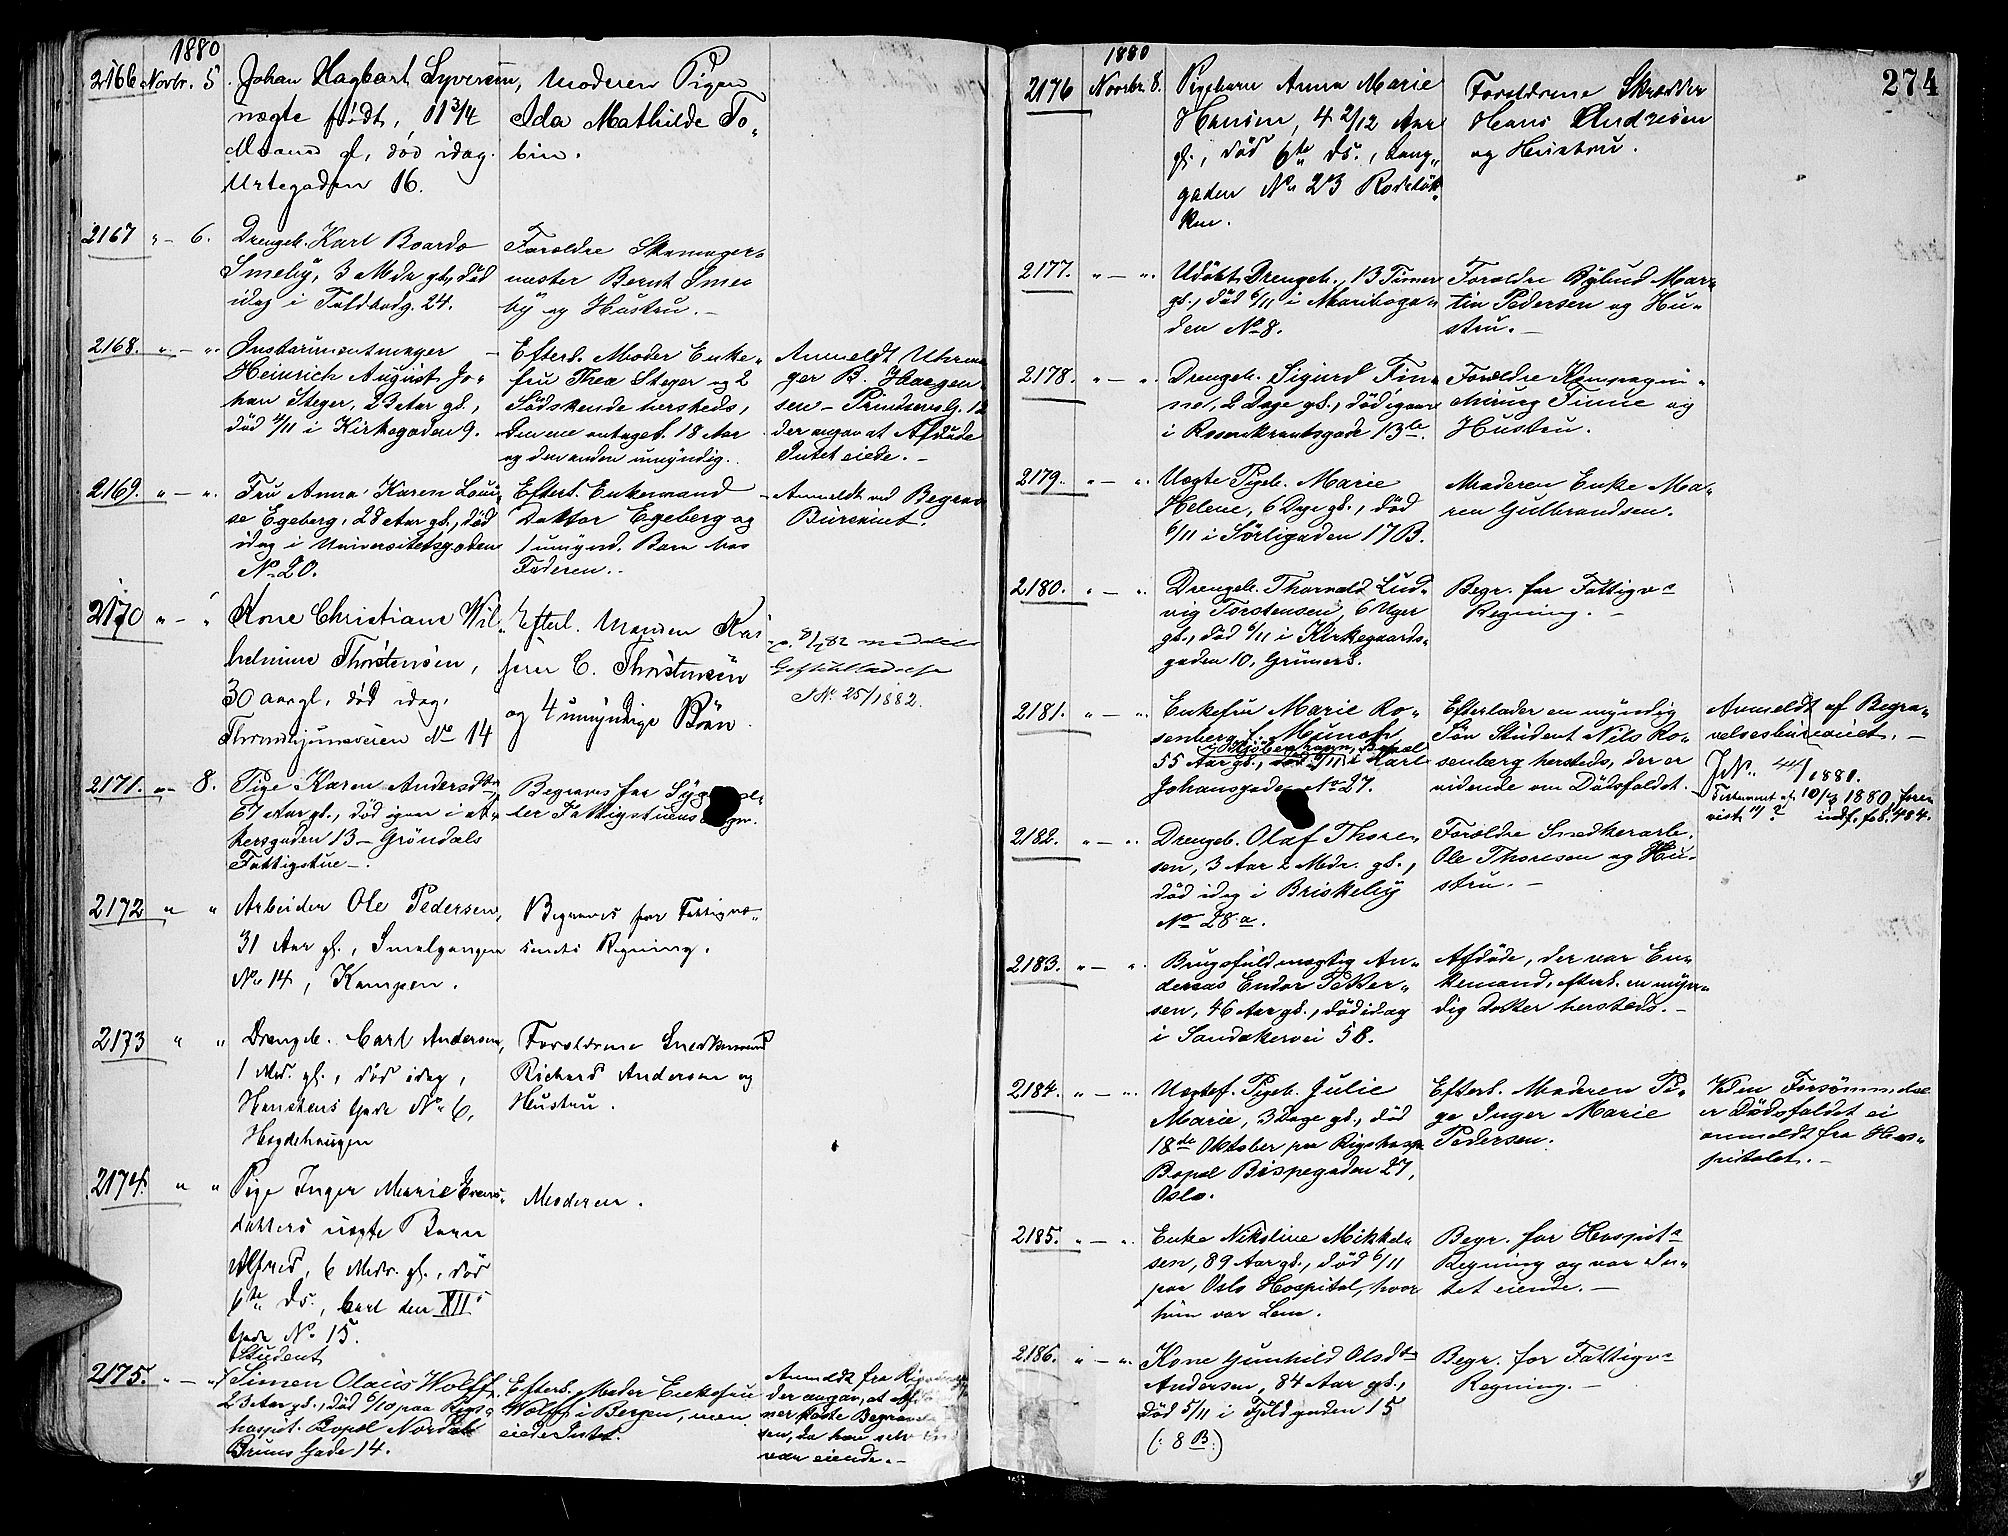 1880
2166 Novbr. 5. Johan Hagbart Syversen, Moderen Pigen
uægte født, 11 3/4 Ida Mathilde To-
Maaned gl., død idag. bin.
Urtegaden 16.
2167 " - 6. Drengeb. Karl
Smeby, 3 Mdr gl., død
idag i 24.
Forældre Skomager-
mester Bernt Sme-
by og Hustru. -
2168. " - ". Instrumentmager -
Heinrich August Jo-
han Steger, 23 Aar gl.,
død 4/11 i Kirkegaden 9.
Efterl. Moder Enke-
fru Thea Steger og 2
Södskende hersteds,
den ene antagel. 18 Aar
og den anden umyndig.
Anmeldt Uhrma
ger B. Haagen-
sen - Prindsensg. 12
der angav at Afdøde
Intet eiede. -
2169. " - ". Fru Anna Karen Loui-
se Egeberg, 28 Aar gl., död
idag i Universitetsgaden
No 20.
Efterl. Enkemand
Doktor Egeberg og
1 umynd. Barn hos
Faderen. -
Anmeldt ved Begrav
Büreauet.
2170 " - " Kone Christiane Wil-
helmine Thorstensen,
30 aar gl., død idag,
Throndhjemsveien No 14
Efterl. Manden Kas
serer C. Thorstensen
og 4 umyndige Börn.
8/ 82 meddelt
J No 25/1882.
2171. " - 8. Pige Karen Andersdtr,
67 Aar gl., död igaar i Ak-
kersgaden 13 - Gröndals
Fattigstue -.
Begraves for
ler Fattigstuens Regn.
2172 " " Arbeider Ole Pedersen,
31 Aar gl., Smalgangen
No 14, Kampen.
Begraves for Fattigvæ-
senets Regning.
2173 " " Drengeb. Carl Andersen,
1 Md. gl., død idag,
Hanstens Gade No 6,
Hægdehaugen
Forældrene Snedkersvend
Richard Andersen og
Hustru.
2174. " " Pige Inger Marie Evens-
datters uægte Barn
Alfred, 6 Mdr. gl., død
6te Ds., Carl den XIIs
Gade No 15.
Moderen.
Student
2175. " - " Simen Olaus Wolff,
23 Aar gl., död 6/10 paa Rigs-
hospit. Bopæl Nordal
Bruns Gade 14.
Efterl. Moder Enkefru
Wolff i Bergen, men
eiede Intet.
Anmeldt fra
der angav, at
ner koste Begravel
sen, da han selv
var eiende. -
274
1880
2176 Novbr. 8. Pigebarn Anna Marie
Hansen, 4 2/12 Aar
gl., død 6te ds., Lang-
gaden No 23 Rodelök-
ken.
Forældrene Skrædder
Hans Andresen
og Hustru.
2177. " - ". Udöbt Drengeb., 13 Timer
gl., död 6/11 i Mariboga-
den No 8.
Forældre Mar-
tin Pedersen og Hu-
stru. -
2178. " - ". Drengeb. Sigurd Fin-
ne, 2 Dage gl., död igaar
i Rosenkrantsgade 13b.
Forældre Kompagni-
chirurg Finne og
Hustru.
2179. " - ". Uægte Pigeb. Marie
Helene, 6 Dage gl., död
6/11 i Sörligaden 17 B.
Moderen Enke Ma-
ren Gulbrandsen.
2180. " - ". Drengeb. Thorvald Lud-
vig Torstensen, 6 Uger
gl., död 6/11 i Kirkegaards-
gaden 10, Grünerl.
Begr. for Fattigvs
Regning. -
2181. " - ". Enkefru Marie Ro-
senberg f. Münch
i Kjöbenhavn, Bopæl
55 Aar gl., död 2/11 i Karl
Johansgade No 27.
Efterlader en myndig
Sön Student Nils Ro-
senberg hersteds, der er
vidende om Dödsfaldet.
Anmeldt af Begra-
velsesbüreauet. -
J No 44/1881.
Testament af 10/3 1880
indf. fol. 484.
2182. " - ". Drengeb. Olaf Thore-
sen, 3 Aar 2 Mdr. gl.,
död idag i Briskeby
No 28 a.
Forældre Snedkerarb.
Ole Thoresen og Hu-
stru. -
2183. " - ". Brugsfuldmægtig An-
dreas Endor Petter-
sen, 46 Aar gl., död idag
i Sandakervei 58.
Afdöde, der var En-
kemand, efterl. en myn-
dig Datter hersteds. -
2184. " - ". Uægtef. Pigeb. Julie
Marie, 3 Dage gl., död
18de Oktober paa Rigshosp.
Bopæl Bispegaden 27,
Oslo.
Efterl. Moderen Pi-
ge Inger Marie
Pedersen.
Ved en Forsömmelse
er Dödsfaldet ei
anmeldt fra Hos-
pitalet. -
2185. " - ". Enke Nikoline Mikkel-
sen, 89 Aar gl., död 6/11
paa Oslo Hospital, hvor
hün var Lem.
Begr. for Hospits
Regning og var In-
tet eiende. -
2186. " - ". Kone Gunhild Olsdtr
Andersen, 84 Aar gl.,
död 5/11 i Fjeldgaden 15
(: 8 B :)
Begr. for Fattigvs
Regning. -